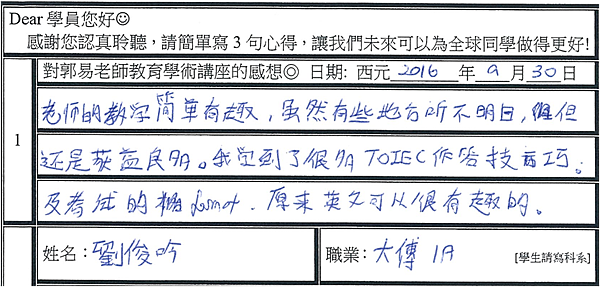 Dear 學員您好☺
感謝您認真聆聽，請簡單寫 3 句心得，讓我們未來可以為全球同學做得更好!
對郭易老師教育學術講座的感想◎ 日期: 西元 2016 年 9 月 30 日
1
老师的教学簡单有趣，虽然有些地方听不明白，但
还是获益良多。我学到了很多 TOIEC 作答技巧。
及考试的 format. 原来英文可以很有趣的。
姓名：劉俊吟
職業：大傳 1A [學生請寫科系]